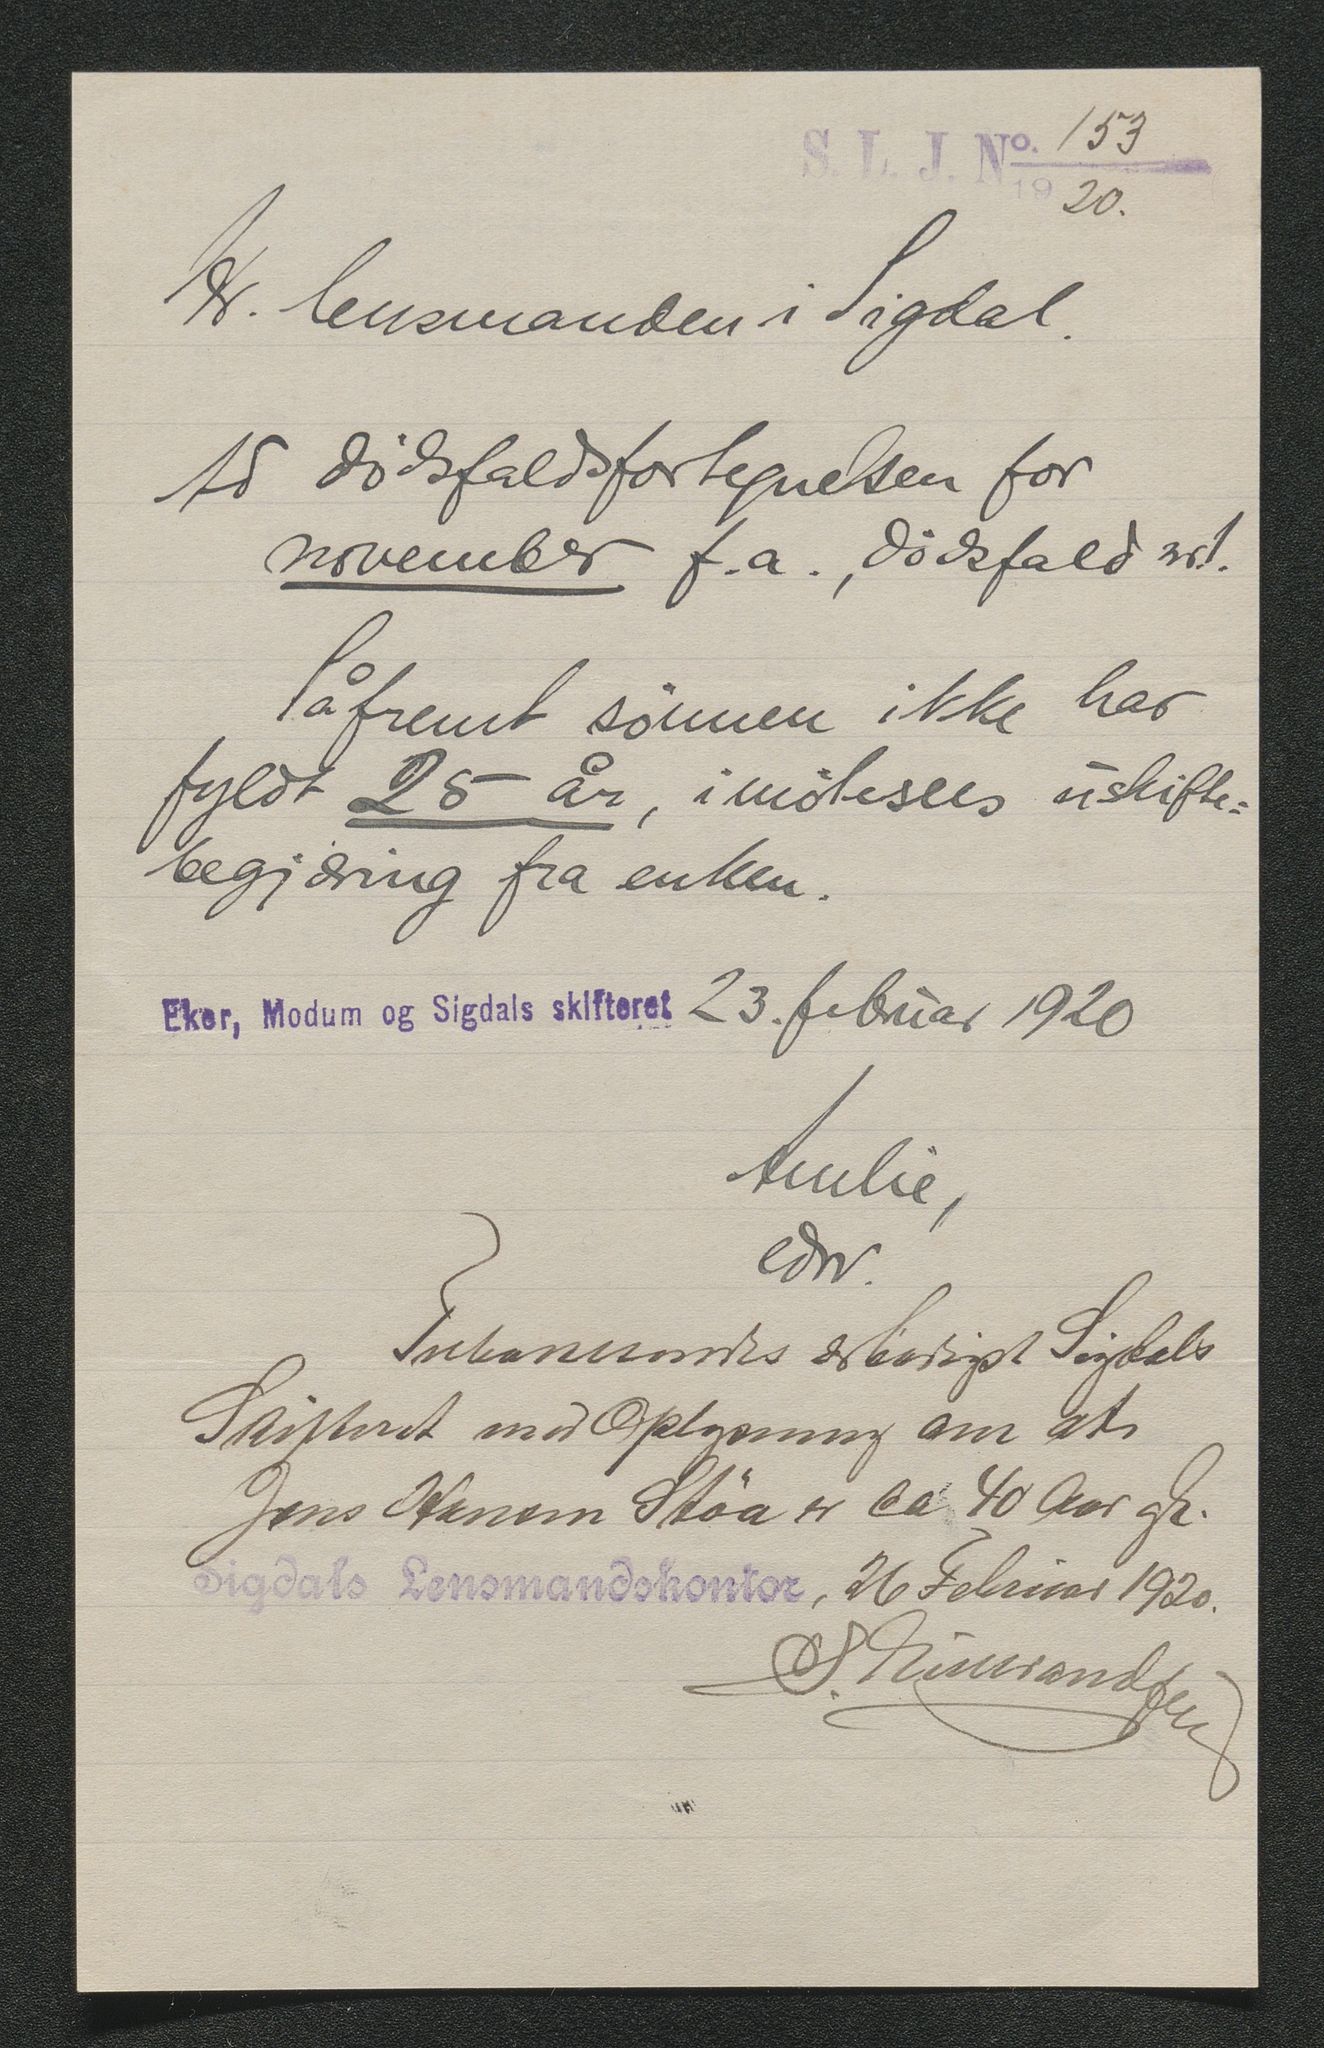 S. L. J. No. 153
1920.
Hr. lensmanden i Sigdal.
Ad dödsfaldsfortegnelsen for
november f.a., dödsfald nr 1.
Såfremt sönnen ikke har
fyldt 25 år, imötesees uskifte=
begjæring fra enken.
Eker, Modum og Sigdals skifteret 23. februar 1920
Amlie,
edw.
Tilbakesendes ærbødigst Sigdals
Skifteret med Oplysning om at
Jens Hansen Stöa er ca 40 Aar gl.
Sigdals Lensmandskontor, 26 Februar 1920.